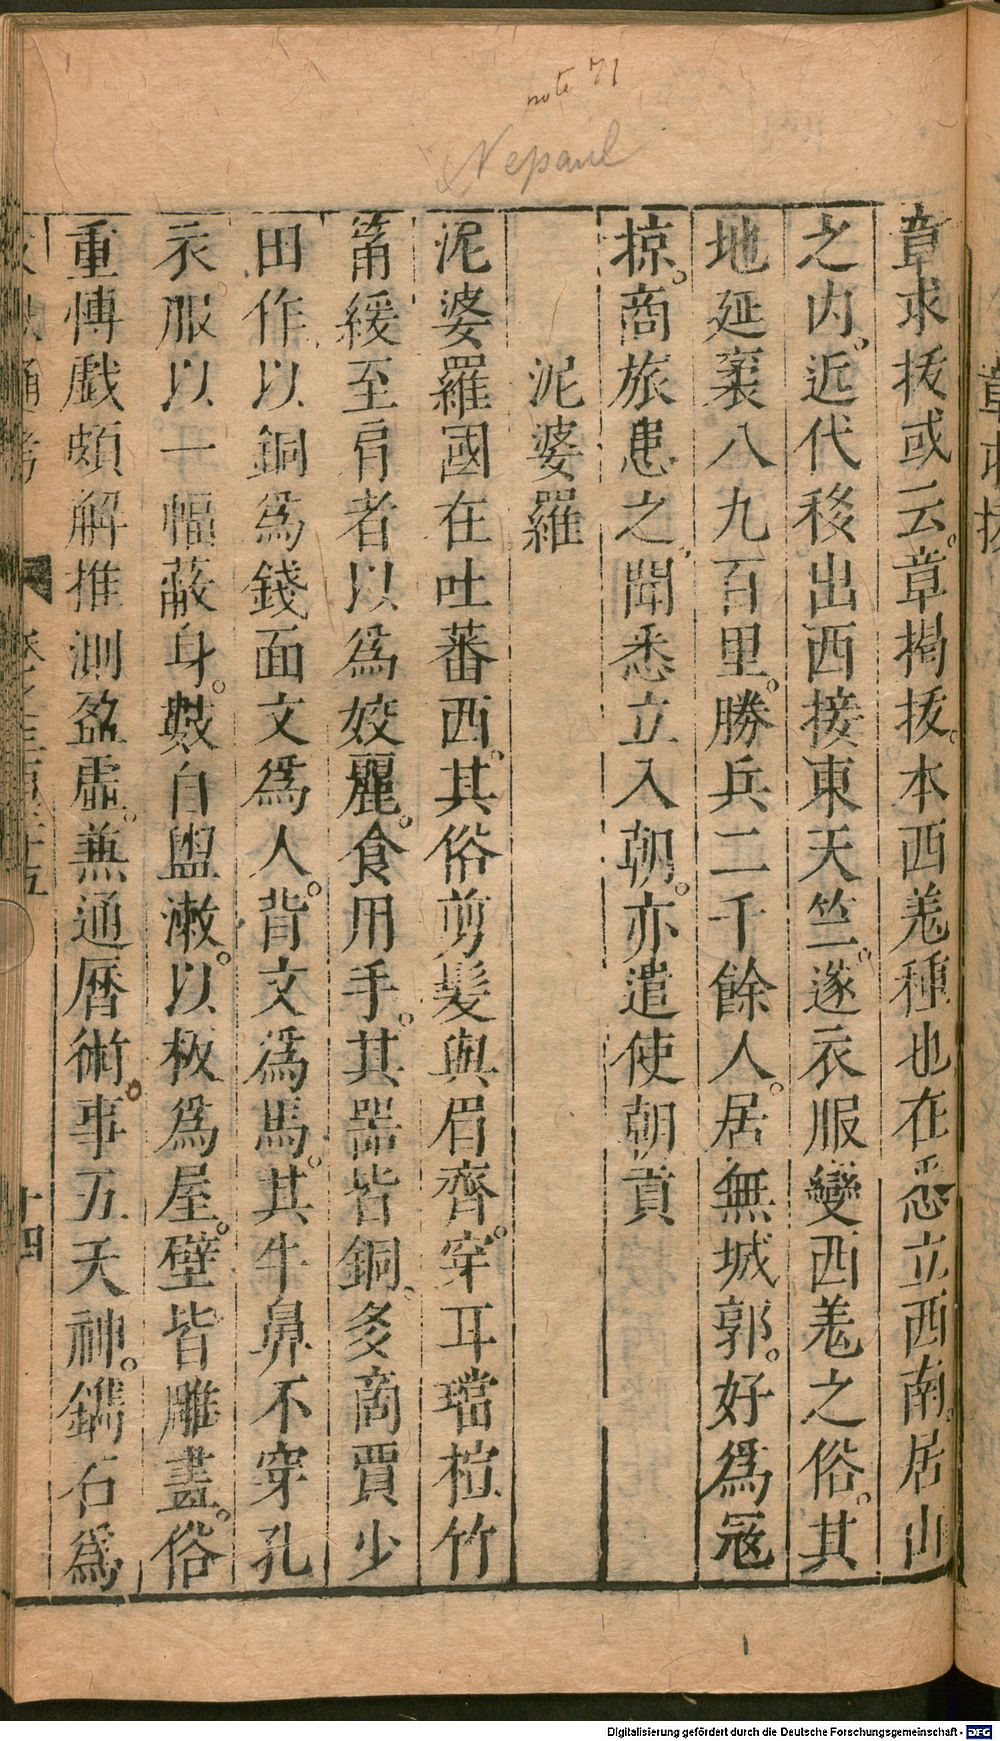 note 71
Nepaul
章求拔或云。章揭拔。本西羗種也在悉立西南。居山
之内。近代移出西接東天竺。遂衣服變西羗之俗。其
地延袤八九百里。勝兵二千餘人。居無城郭。好爲冦
掠。商旅患之聞悉立入朝。亦遣使朝貢
泥婆羅
泥婆羅國在吐蕃西。其俗剪髮與眉齊。穿耳璫植竹
筩緩至肩者以爲姣麗。食用手。其噐皆銅、多商賈少
田作以銅爲錢面文爲人。背文爲馬。其牛鼻不穿孔
衣服以一幅蔽身。數自盥漱。以板爲屋。壁皆雕畫。俗
重愽戲頗解推測盈虛。兼通曆術。事五天神。鐫石爲
十四
Digitalisierung gefördert durch die Deutsche Forschungsgemeinschaft - DFG